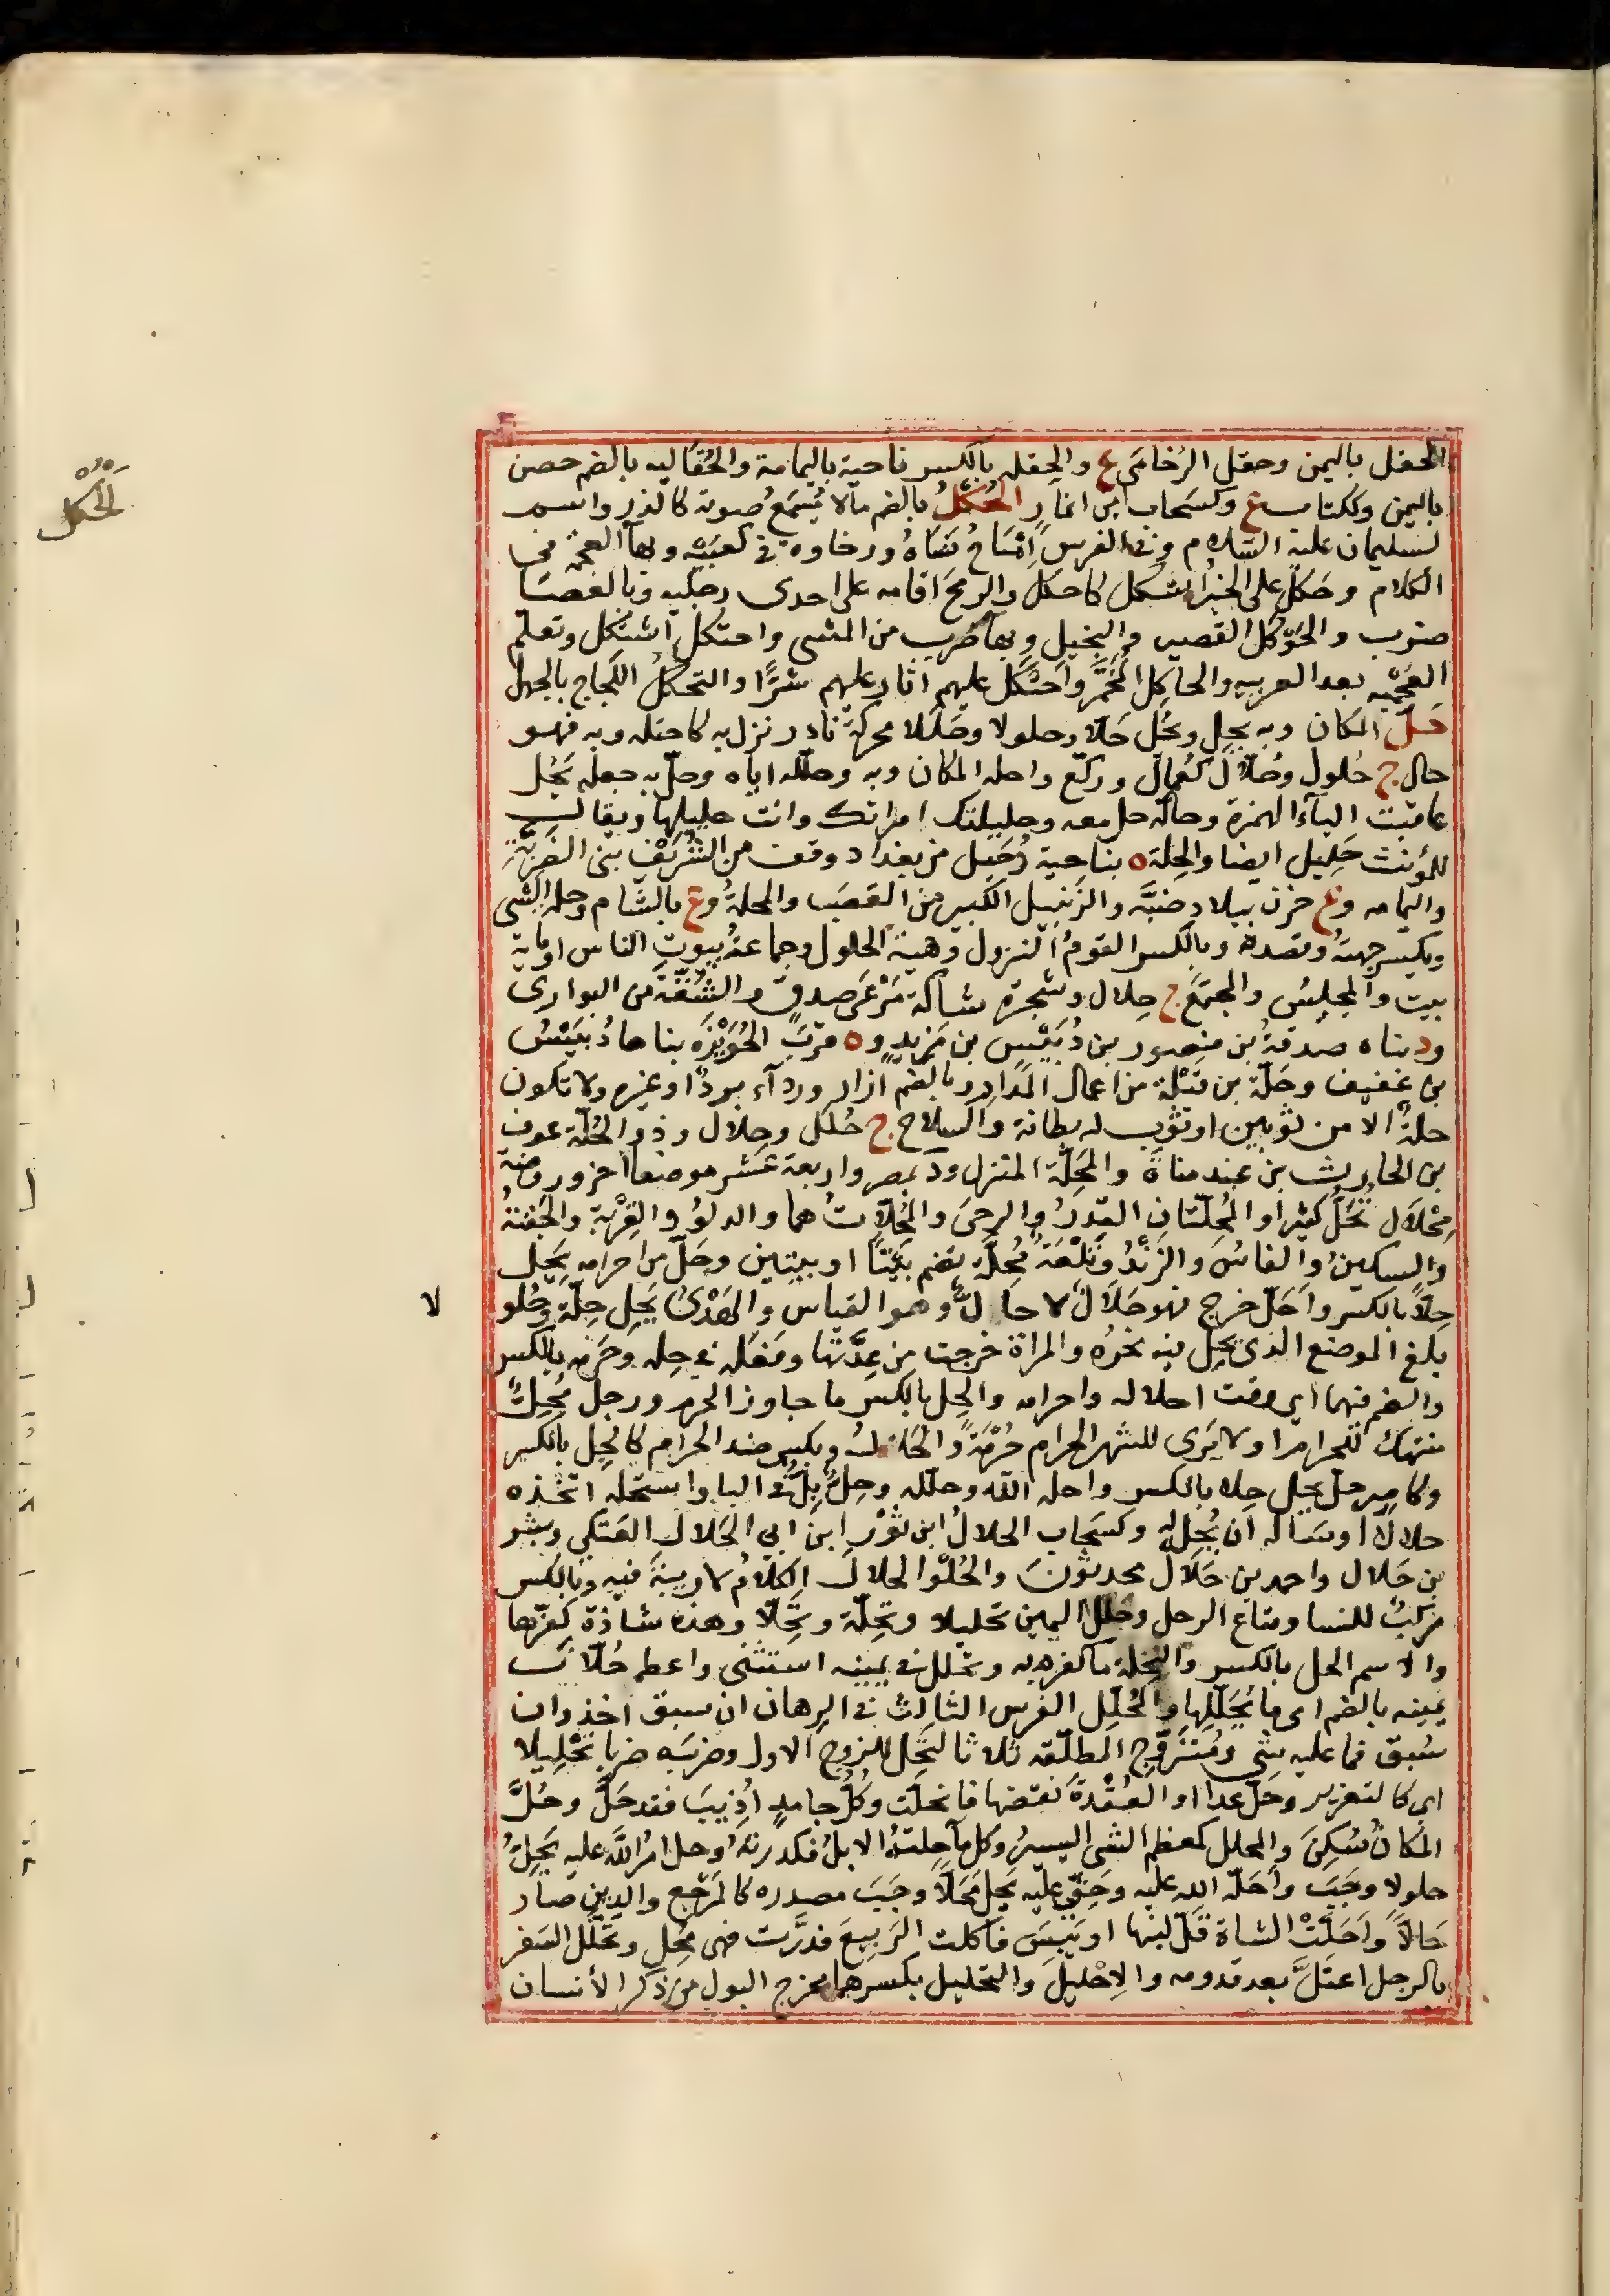 المحفل باليمن وحقل الرُخامَى ع والحِقله بالكسر ناحية باليمامة والحُقاليه بالضم حصن
باليمن وككتاب ع وكسَحاب ابن انمارِ الحُكلُ بالضم مالا يُسمَعُ صوته كالذر واسم
لسليمان عليه السلام وفي الفرس امّساخُ نَسَاهُ ورخاوة في كعبَيه وبهاء العجمة في
الكلام وحَكَلَ على الخبرُ اشكل كاحكل والرمحَ اقامه على احدى رجليه وبالعصا
ضرب والحَوكل القصير والبخيل وبهاء ضرب من المشى واحتكل اشتكل وتعلم
العجميه بعد العربيه والحاكِل المُخَمِّن واحْتَكَل عليهم اثار عليهم شرًا والتحكل اللجاج بالجهل
حَلَّ المكان وبه يحِل ويحُل حَلّا وحلولا وحَلَلا محركة نادر نزل به كاحتله وبه فهو
حال ج حُلول وحُلّال كعُمال وركّع واحله المكان وبه وحلّله اياه وحلّ به جعله يَحُل
عاقبت الباء الهمزة وحالّه حل معه وحليلتك امراتك وانت حليلها ويقال
للمؤنث حَليل ايضا والحِلة ه بناحية دُجَيل من بغداد وقف من الشُرَيْف بنى الضَرِيَّة
واليمامه وع حزن ببلاد ضَبَّة والزنبيل الكبير من القصَب والمحلة وع بالشام وحلة الشى
ويكسر جهتهُ وقصده وبالكسر القومُ النزول وهيئة الحلول وجماعة بيوتِ الناس او مائة
بيت والمجلِس والمجتمَع ج حِلال وشجرة شاكة مَرْعَى صدق والشُقّة من البوارى
ود بناه صدقة بن منصور بن دُبَيْس بن مَزيدٍ و ه قربَ الحُوَيْزَة بناها دُبَيْسُ
بن عفيف وحَلّة بن قتلة من اعمال المَذارِ وبالضم ازار ورداء بردًا وغيره ولا تكون
حلةً الا من ثوبين او ثوب له بطانة والسلاح ج حُلل وحِلال وذو الحُلّة عوف
بن الحارث بن عبد مناة والمَحَلّة المنزل ود بمصر واربعة عشر موضعا اخر وروضة
مِحْلَال تُحَلّ كثيرا والمُحِلّتان القِدرُ والرحى والمُحِلّاتُ هما والدلوُ والقِرْبة والجَفنةُ
والسكينُ والفاسُ والزَنْدُ وتَلْعَةٌ مُحِلّة تضم بَيْتًا او بيتين وحَلّ من احرامه يَحِل
حِلاًّ بالكسر واحَلّ خرج فهو حَلَالٌ لا حالٌّ وهو القياس والهَدْىُ يَحِل حِلّة وحُلو لا
بلغ الموضع الذى يحِل فيه نحرُه والمراة خرجت من عِدَّتها وفعَله في حِله وحَرمه بالكسر
والضم فيهما اى وقت احلاله واحرامه والحِل بالكسر ما جاوز الحرم ورجل مُحِلّ
منتهك للحرام او لا يَرى للشهر الحرام حُرْمَةً والحَلال ويكسر ضد الحرام كالحِل بالكسر
وكامير حل يحِل حِلا بالكسر واحله الله وحلّله وحِلّ بِلّ في البا واستحله اتخذه
حلالا او سَاله ان يُحِلّ له وكسَحاب الحلالُ ابن ثَوْر ابن ابى الحَلال العَتَكى وبشر
بن حَلال واحمد بن حَلال محدثونَ والحُلو الحلال الكلامُ لا ريبةَ فيه وبالكسر
مركبٌ للنسا ومتاع الرحل وحلل اليمين تحليلا وتحِلّة وتحِلّا وهذه شاذة كفّرها
والاسم الحل بالكسر والتَحِلّة ما كفر به وتحلل في يمينه استثنى واعطه حُلّان
يمينه بالضم اى ما يُحَلّلها والمُحَلِّل الفرس الثالث في الرهان ان سبق اخذ وان
سُبق فما عليه شى ومُتَزَوّج المطلّقه ثلاثا لتَحِل للزوج الاول وضربَه ضربا تحْليلا
اى كالتعزير وحَلّ عدا او العُقْدةَ نقضها فانحلّت وكُلُّ جامدٍ اُذِيبَ فقد حَلَّ وحُلَّ
المكانُ سُكِنَ والمحلل كمعظم الشى اليسيرُ وكل ماء حلتهُ الابلُ فكدرتهُ وحل امرُ الله عليه يَحِلُّ
حلولا وجَبَ واحَلّه الله عليه وحَقّى عليه يَحِل مَحِلّا وجَبَ مصدره كالمَرْجِع والدين صار
حَالّا واَحَلَّتْ الشاة قَلّ لبنها او يَبِسَ فاكلت الربيعَ فدَرَّت فهى مُحِل وتحَلّلَ السَفر
بالرجل اعتَلَّ بعد قدومه والاِحْليل والتحليل بكسرهما مخرج البول من ذكر الأنسان
الحُكل
لا